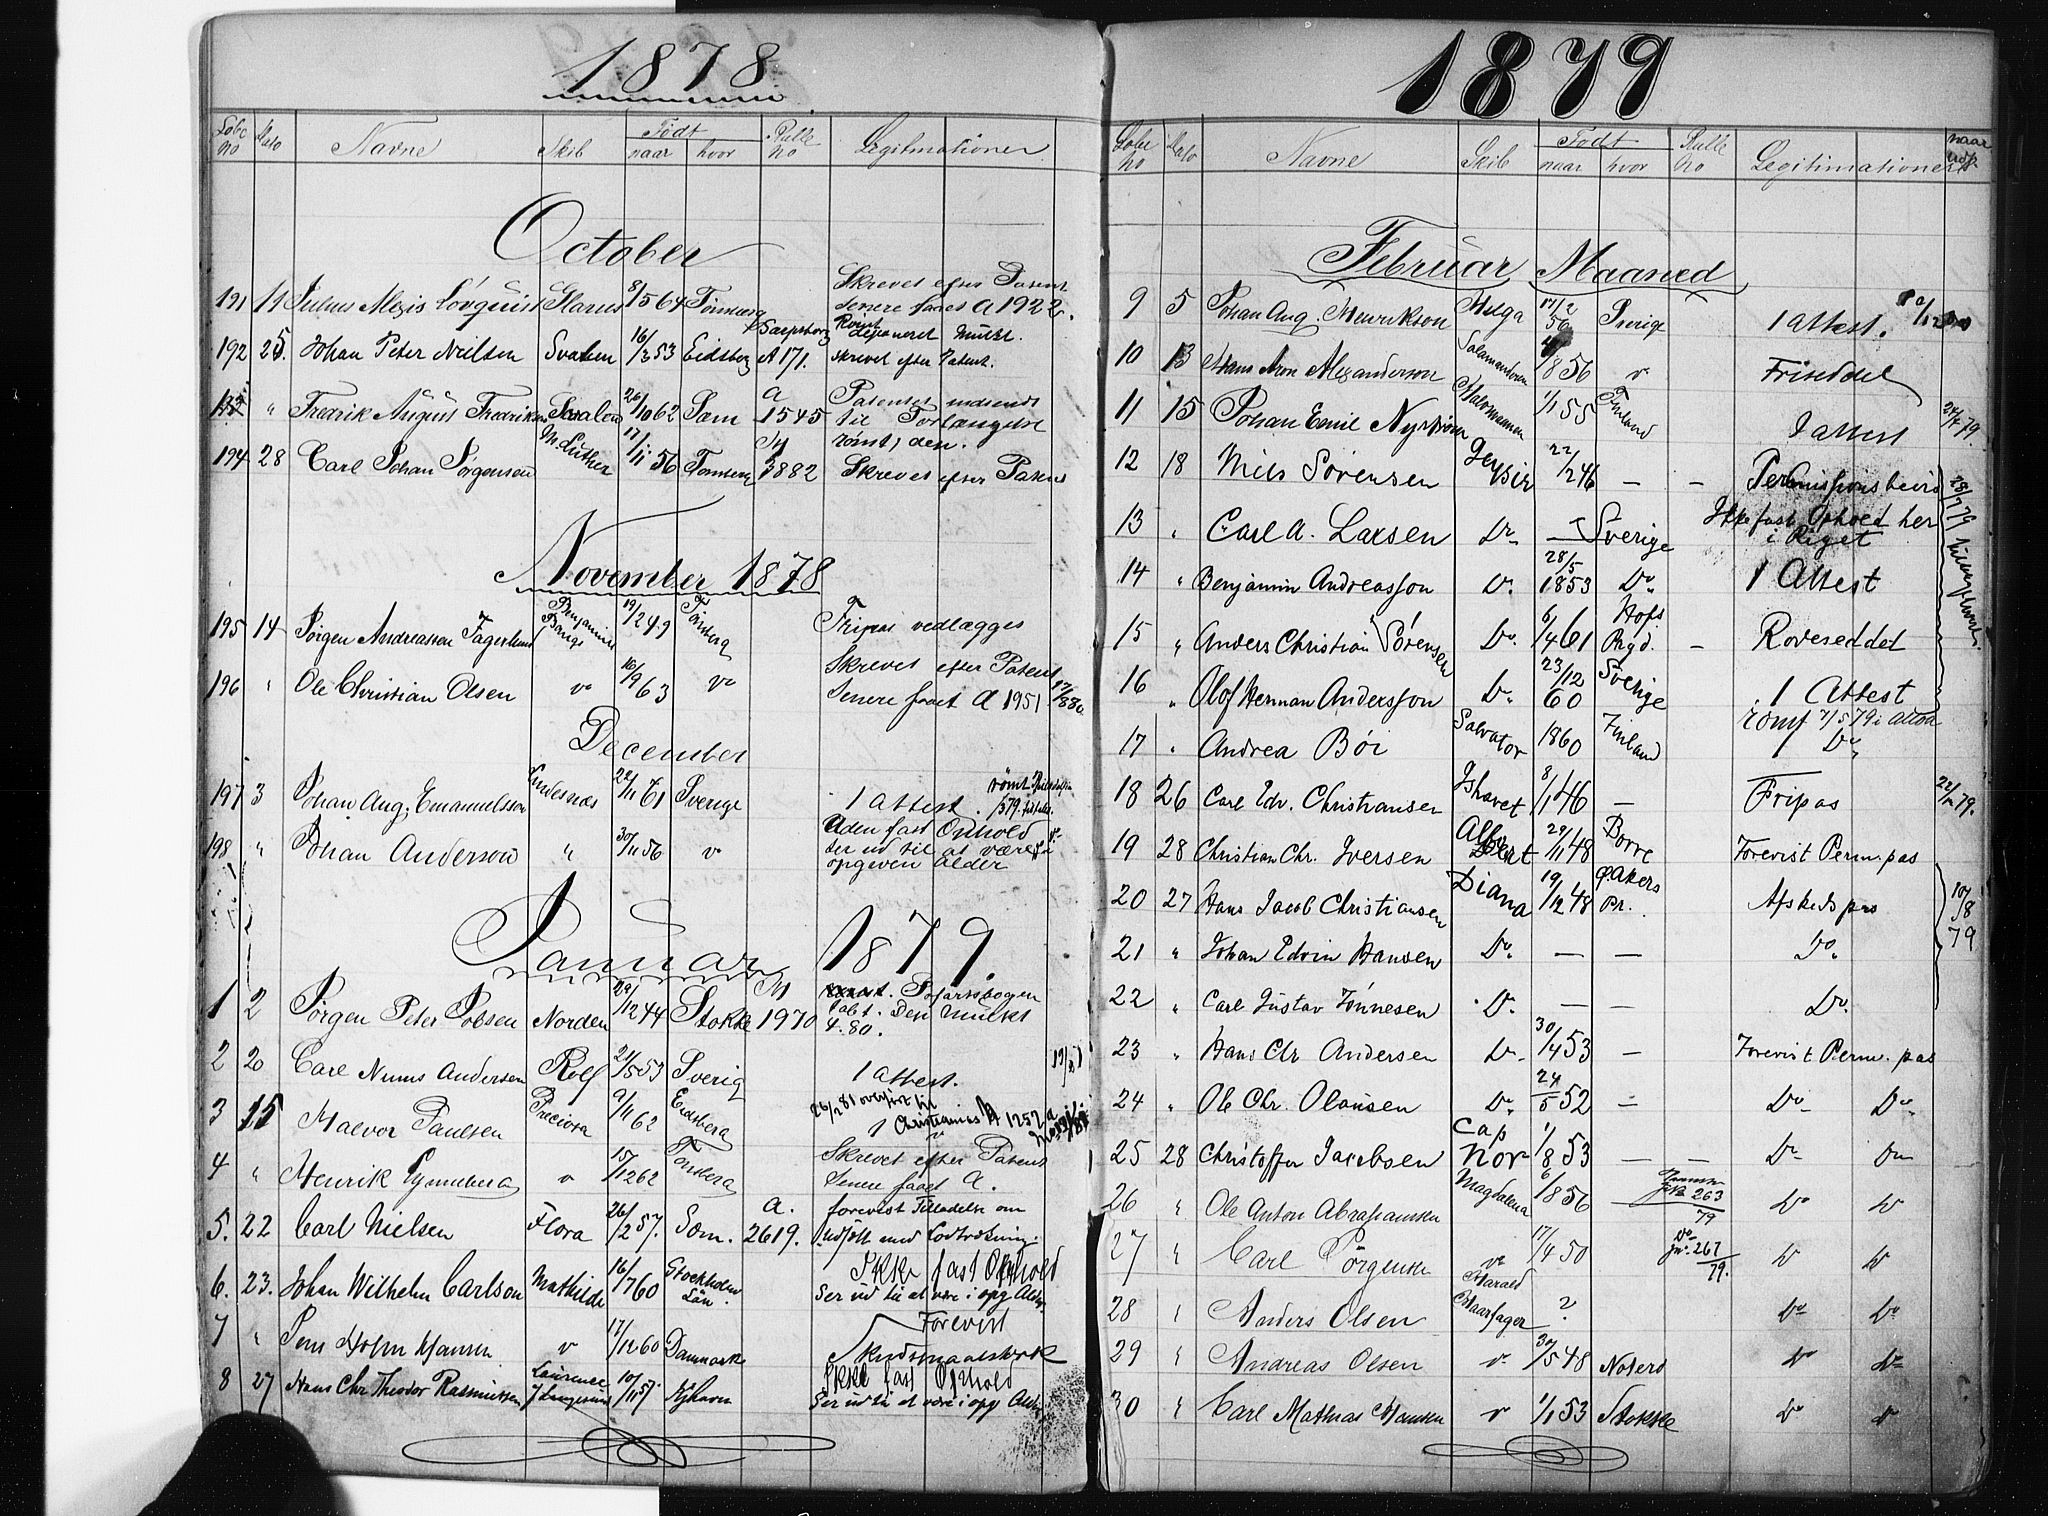 1878
Løbe No Dato Navne Skib Født naar hvor Rulle No Legitimationer
October
191 19 Julius Alexis Lövquist Glarus 8/1564 Tönsberg Skrevet efter Patent
senere faaet A 1922.
192 25. Johan Peter Neilsen Svalen 16/253 Eidsberg Sarpsborg A 171. Rømt deponeret Mulkt.
skrevet efter Patent.
" Fredrik August Fredriksen Svalen 26/1062 Sæm A 1545 Patentet indsendt
til Forlængelse
194 28 Carl Johan Jörgensen M. Luther 17/11 56 Tönsberg 3882 rømt, den.
Skrevet efter Patent
November 1878
195 14 Jörgen Andreassen Fagerlund Benjamin Bangs 19/249 Tönsberg Fripas vedlægges
196 " Ole Christian Olsen vo 16/9 63 vo Skrevet efter Patent
Senere faaet A 1951 17/880
December
197 3 Johan Aug. Emanuelsson Lindesnæs 22/11 61 Sverige 1 Attest. rømt
198 " Johan Anderson " 30/11 56 v Uden fast Ophold
ser ud til at være i
opgeven alder
Januar 1879.
1 2 Jørgen Peter Jobsen Norden 29/1244 Stokke 1970 Søfartsbogen
tabt. Den Mulkt
4.80.
2 20 Carl Nums Andersen Rolf 21/553 Sverig 1 Attest.
3 15 Halvor Paulsen Preciosa 9/11 62 Eidsberg 26/281 overført til
Christiania A 1252
4 " Henrik Lynneberg v 15/1262 Tönsberg Skrevet efter Patent
Senere faaet A.
5. 22 Carl Nielsen Flora 26/257. Sæm. A. 2619. forevist Tilladelse om
Udsætt med Lodtrækning.
6. 23. Johan Wilhelm Carlson Mathilde 16/760 Stockholm Län. Ikke fast Ophold
Ser ud til at være i opg Alder
7 " Jens Holm Hansen v 17/1260 Danmark Forevist
Skudsmaalsbok
8 27 Hans Chr Theodor Rasmussen Laurence 10/1157. Kjhavn Ikke fast Ophold
Ser ud til at være i opg Alder
1879
Løbe No Dato Navne Skib Født naar hvor Rulle No Legitimationer naar udp.
Februar Maaned
9 5 Johan Aug. Henrikson Helga 17/2 56 Sverige 1 Attest.
10 13 Hans Aron Alexanderson Salamanderen /856 v Friseddel
11 15 Johan Emil Nyström 1/1 55 Finland 1 attest 24/4 79
12 18 Nils Sörensen Geysir 22/246 — — Permissionsbevis
13 " Carl A. Larsen Do — Sverige Ikke fast Ophold her
i Riget
14 " Benjamin Andreasson Do. 28/5 1853 Do 1 Attest
15 " Anders Christian Sörensen Do. 6/461 Hofs Pgd. — Roveseddel
16 " Olof Herman Andersson Do. 23/12 60 Sverige 1 Attest
rømt 7/579 i Altona
17 " Andrea Böi Salvator 1860 Finland Do
18 26 Carl Edv. Christiansen Ishavet 8/146 — Fripas 22/ 79.
19 28 Christian Chr. Iversen Albert 29/1148 Borre Forevist Perm. pas
20 27 Hans Jacob Christiansen Diana 19/1248 Ø. Akers Pr. Afskedspas 10/8 79
21 " Johan Edvin Hansen Do — — Do.
22 " Carl Gustav Tönnesen Do — — Do.
23 " Hans Chr Andersen Do 30/453 — Forevist Perm. pas
24 " Ole Chr. Olausen Do 24/552 Do Do
25 28 Christoffer Jacobsen Cap Nor 1/853 — — Do Do
26 " Ole Anton Abrahamsen Magdalena 6/856 263/79 Do Do
27 " Carl Jørgensen vo 17/450 Do 267/79. Do Do
28 " Anders Olsen Harald Haarfager ? Do Do
29 " Andreas Olsen v. 30/548 Noterö Do Do
30 " Carl Mathias Hansen v 1/153 Stokke Do Do